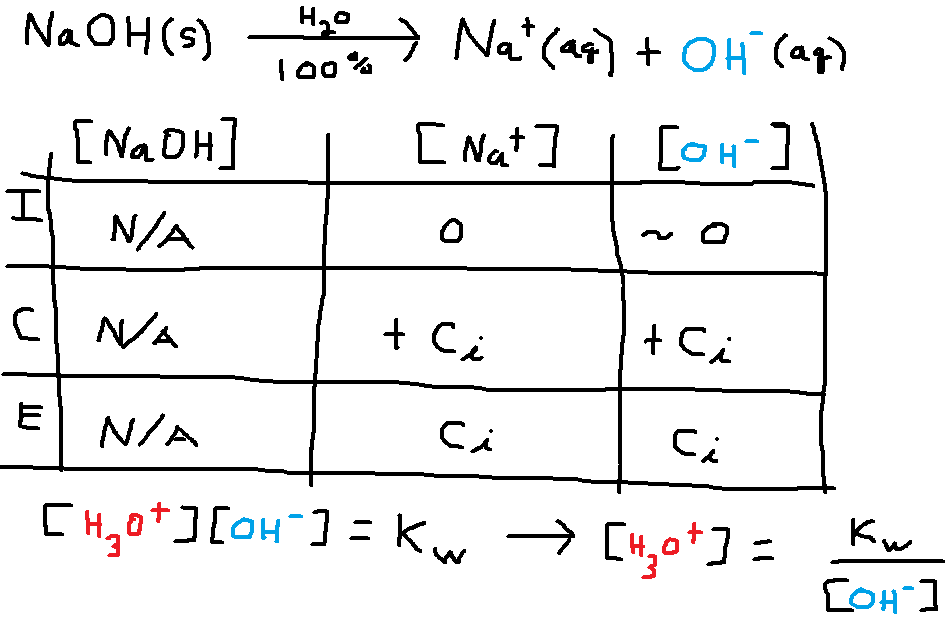 NaOH(s) H₂O 100% → Na⁺(aq) + OH⁻(aq)
[NaOH] [Na⁺] [OH⁻]
I N/A 0 ~ 0
C N/A + Cᵢ + Cᵢ
E N/A Cᵢ Cᵢ
[H₃O⁺][OH⁻] = Kw → [H₃O⁺] = Kw / [OH⁻]